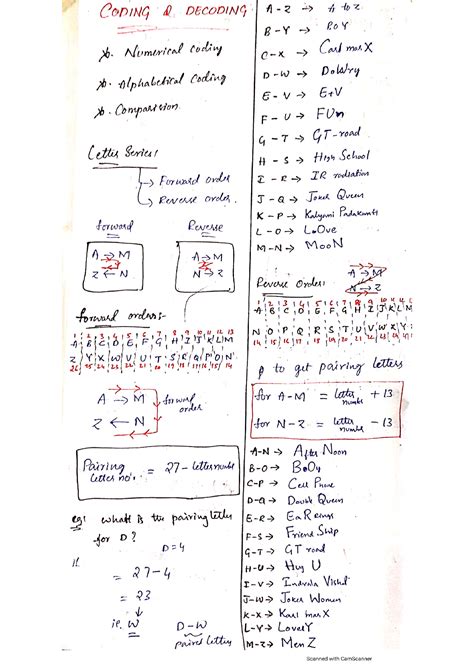 CODING & DECODING
Numerical coding
Alphabetical Coding
Comparision
Letter Series:
Forward order
Reverse order.
forward
Reverse
A → M
Z ← N
A → M
Z → N
forward orders:-
1 2 3 4 5 6 7 8 9 10 11 12 13
A B C D E F G H I J K L M
Z Y X W V U T S R Q P O N
26 25 24 23 22 21 20 19 18 17 16 15 14
A → M
Z ← N
forward order
Pairing letter no. = 27 - letter number
eg: what is the pairing letter
for D?
D=4
= 27-4
= 23
ie. W
D-W
paired letters
A-Z → A to Z
B-Y → BOY
C-X → Carl marX
D-W → DoWry
E-V → E+V
F-U → FUn
G-T → GT-road
H-S → High School
I-R → IR radiation
J-Q → Joker Queen
K-P → Kalyani
L-O → LOve
M-N → MooN
Reverse Order:
A → M
N → Z
1 2 3 4 5 6 7 8 9 10 11 12 13
A B C D E F G H I J K L M
N O P Q R S T U V W X Y Z
14 15 16 17 18 19 20 21 22 23 24 25 26
to get pairing letters
for A-M = letter number + 13
for N-Z = letter number - 13
A-N → After Noon
B-O → BoOy
C-P → Cell Phone
D-Q → Double Queen
E-R → EaRings
F-S → Friend Ship
G-T → GT road
H-U → Hug U
I-V →
J-W → Joker Women
K-X → Karl marX
L-Y → LovelY
M-Z → Men Z
Scanned with CamScanner